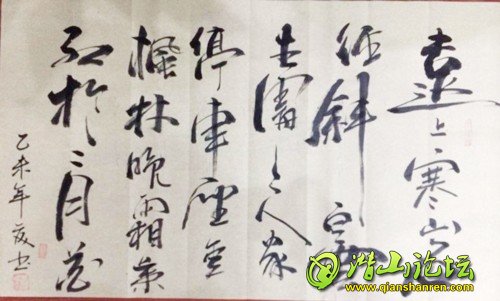 遠上寒山石
径斜白云
生處有人家
停車座爱
楓林晚霜葉
红於二月花
乙未年夏书
潜山论坛
www.qianshanren.com